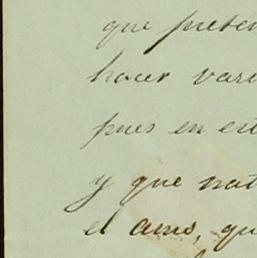 que preten
hacer vari
pues en est
y que nat
el amo, qu